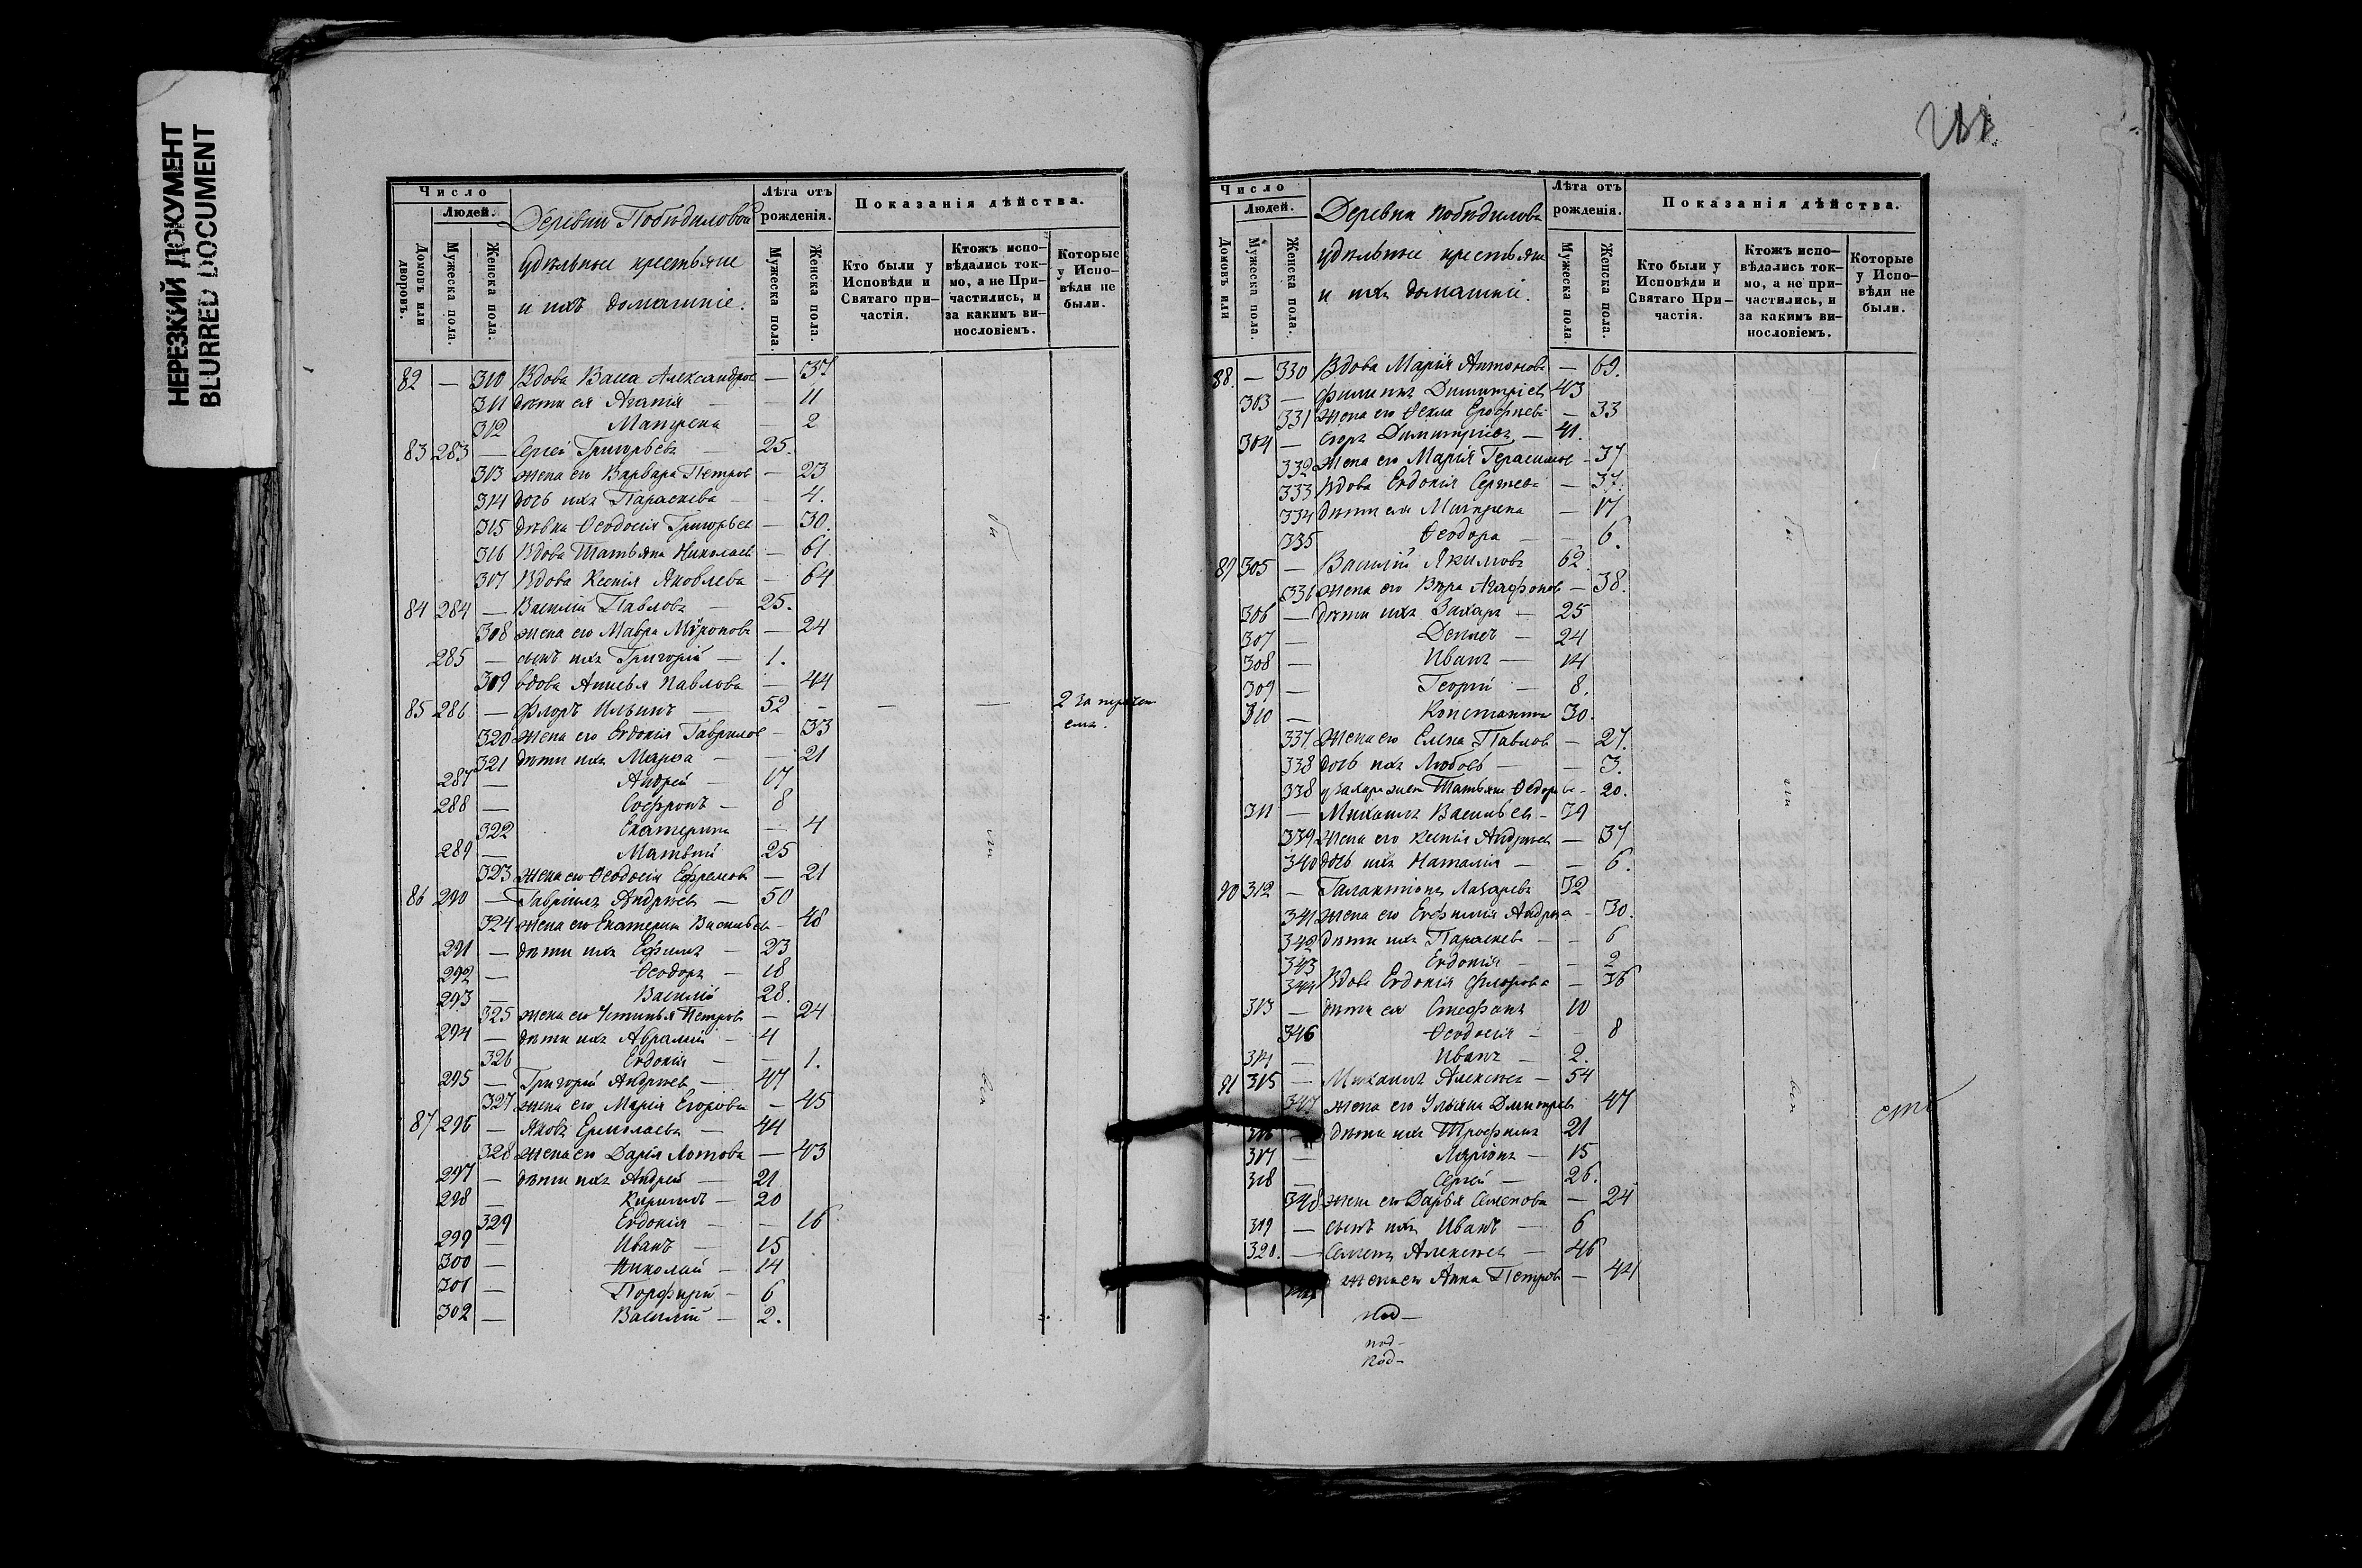 НЕРЕЗКИЙ ДОКУМЕНТ
BLURRED DOCUMENT
Число
Людей.
Домовъ или дворовъ.
Мужеска пола.
Женска пола.
Деревни Побѣдиловой
удѣльные крестьяне
и ихъ домашніе.
Лѣта отъ рожденія.
Мужеска пола.
Женска пола.
Показанія дѣйства.
Кто были у Исповѣди и Святаго при-частія.
Ктожъ испо-вѣдались ток-мо, а не При-частились, и за какимъ ви-нословіемъ.
Которые у Испо-вѣди не были.
82 — 310 Вдова Васса Александров — 37
311 дѣти ея Агапія — — 11
312 Матрена — 2
83 283 — Сергей Григорьевъ — 25.
313 жена его Варвара Петров — 23
314 дочь ихъ Параскева — — 4.
315 дѣвка Ѳеодосія Григорьев — 30.
316 Вдова Татьяна Николаев — 61.
317 Вдова Ксенія Яковлева — 64
84 284 — Василій Павловъ — 25.
318 жена его Мавра Мѵронова — 24
285 — сынъ ихъ Григорій — 1.
319 вдова Анисья Павлова — 44
85 286 — Флоръ Ильинъ — 52 — — — 2 за
320 жена его Евдокія Гаврилов — 33
321 дѣти ихъ Марѳа — — 21
287 — Андрей — 17
288 — Софронъ — 8
322 Екатерина — 4
289 — Матвѣй 25
323 жена его Ѳеодосія Ефремова — 21
86 290 — Гавріилъ Андреев — 50
324 жена его Екатерина Васильев — 48
291 — дѣти ихъ Ефимъ — 23
292 — Ѳеодоръ — 18
293 — Василій 28.
325 жена его Устинья Петрова — 24
294 — дѣти ихъ Аврамій — 4
326 Евдокія — — 1.
295 — Григорій Андреев — 47
327 жена его Марія Егорова — 45
87 296 — Яковъ Ермолаевъ — 44
328 жена его Дарія Лотова — 43
297 — дѣти ихъ Андрей — 21
298 — Кирилъ — 20
329 Евдокія — — 16
299 — Иванъ — 15
300 — Николай — 14
301 — Порфирій — 6
302 — Василій — 2.
бы
ли
вси
Число
Людей.
Домовъ или
Мужеска пола.
Женска пола.
Деревни Побѣдилова
удѣльные крестьяне
и ихъ домашніе.
Лѣта отъ рожденія.
Мужеска пола.
Женска пола.
Показанія дѣйства.
Кто были у Исповѣди и Святаго При-частія.
Ктожъ испо-вѣдались ток-мо, а не при-частились, и за какимъ ви-нословіемъ.
Которые у Испо-вѣди не были.
88. — 330 Вдова Марія Антонова — 69.
303 — Филиппъ Димитріев 43
331 Жена его Ѳекла Ерофеева — 33
304 — Егоръ Димитріевъ — 41.
332 Жена его Марія Герасимов — 37
333 Вдова Евдокія Сергѣева — 37.
334 дѣти ея Матрена — 17
335 Ѳеодора — — 6.
89 305 — Василій Якимовъ 62.
336 жена его Вѣра Агафонов — 38.
306 — дѣти ихъ Захаръ — 25
307 — Денисъ — 24
308 — Иванъ — 14
309 — Георгій — 8.
310 — Константин 30.
337 Жена его Елена Павлов — 27.
338 дочь ихъ Любовь — — 3.
338 у Захара жена Татьяна Ѳедоро — 20.
311 — Михаилъ Васильев — 39
339 Жена его Ксенія Андреев — 37
340 дочь ихъ Наталія — — 6.
90 312 — Галактіонъ Лазаревъ 32
341 Жена его Евфимія Андреева — 30.
342 дѣти ихъ Параскева — — 6
343 Евдокія — — 2
344 Вдова Евдокія Флорова — 36
313 — дѣти ея Стефанъ 10
346 Ѳеодосія — — 8
314 — Иванъ — 2.
91 315 — Михаилъ Алексѣев — 54
347 жена его Ульяна Дмитрев 47
316 — дѣти ихъ Трофимъ 21
317 — Ларіонъ — 15
318 — Сергей — 26.
348 жена его Дарья Семенова — 24
319 — сынъ ихъ Иванъ — 6
320. — Семенъ Алексѣев — 46
жена его Анна Петров — 44
бы
ли
вси
под—
под—